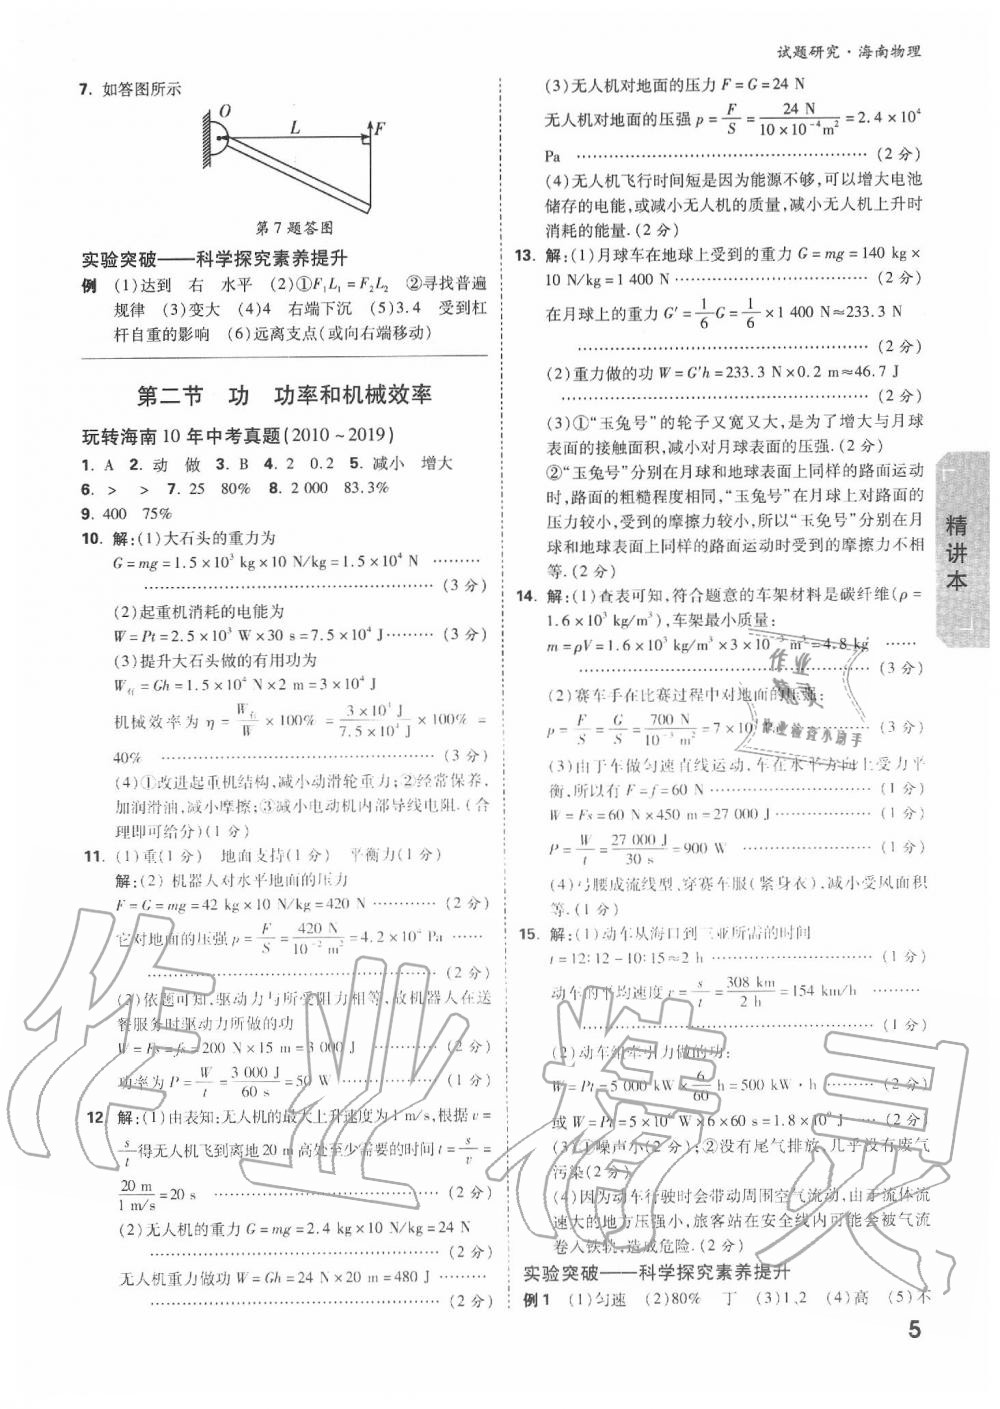 试题研究·海南物理
7. 如答图所示
O
L
F
第7题答图
实验突破——科学探究素养提升
例 (1)达到 右 水平 (2)①F₁L₁=F₂L₂ ②寻找普遍
规律 (3)变大 (4)4 右端下沉 (5)3.4 受到杠
杆自重的影响 (6)远离支点(或向右端移动)
第二节 功 功率和机械效率
玩转海南10年中考真题(2010~2019)
1. A 2. 动 做 3. B 4. 2 0.2 5. 减小 增大
6. > > 7. 25 80% 8. 2 000 83.3%
9. 400 75%
10. 解:(1)大石头的重力为
G=mg=1.5×10³ kg×10 N/kg=1.5×10⁴ N ………
……………………………………………… (3分)
(2)起重机消耗的电能为
W=Pt=2.5×10³ W×30 s=7.5×10⁴ J……… (3分)
(3)提升大石头做的有用功为
W有=Gh=1.5×10⁴ N×2 m=3×10⁴ J
机械效率为 η=W有/W×100%=3×10⁴ J/7.5×10⁴ J×100%=
40% ……………………………………… (3分)
(4)①改进起重机结构,减小动滑轮重力;②经常保养,
加润滑油,减小摩擦;③减小电动机内部导线电阻.(合
理即可给分)(1分)
11. (1)重(1分) 地面支持(1分) 平衡力(1分)
解:(2) 机器人对水平地面的压力
F=G=mg=42 kg×10 N/kg=420 N ………… (2分)
它对地面的压强p=F/S=420 N/10⁻² m²=4.2×10⁴ Pa ……
……………………………………………… (2分)
(3)依题可知,驱动力与所受阻力相等,故机器人在送
餐服务时驱动力所做的功
W=Fs=fs=200 N×15 m=3 000 J ………… (2分)
功率为P=W/t=3 000 J/60 s=50 W ……………… (1分)
12. 解:(1)由表知:无人机的最大上升速度为1 m/s,根据v=
s/t得无人机飞到离地20 m高处至少需要的时间t=s/v=
20 m/1 m/s=20 s ………………………………… (2分)
(2)无人机的重力G=mg=2.4 kg×10 N/kg=24 N
……………………………………………… (2分)
无人机重力做功W=Gh=24 N×20 m=480 J ………
……………………………………………… (2分)
(3)无人机对地面的压力F=G=24 N
无人机对地面的压强p=F/S=24 N/10×10⁻⁴m²=2.4×10⁴
Pa ………………………………………… (2分)
(4)无人机飞行时间短是因为能源不够,可以增大电池
储存的电能,或减小无人机的质量,减小无人机上升时
消耗的能量.(2分)
13. 解:(1)月球车在地球上受到的重力G=mg=140 kg×
10 N/kg=1 400 N………………………… (2分)
在月球上的重力G′=1/6G=1/6×1 400 N≈233.3 N
……………………………………………… (2分)
(2)重力做的功W=G′h=233.3 N×0.2 m≈46.7 J
……………………………………………… (2分)
(3)①“玉兔号”的轮子又宽又大,是为了增大与月球
表面的接触面积,减小对月球表面的压强.(2分)
②“玉兔号”分别在月球和地球表面上同样的路面运动
时,路面的粗糙程度相同,“玉兔号”在月球上对路面的
压力较小,受到的摩擦力较小,所以“玉兔号”分别在月
球和地球表面上同样的路面运动时受到的摩擦力不相
等.(2分)
14. 解:(1)查表可知,符合题意的车架材料是碳纤维(ρ=
1.6×10³ kg/m³),车架最小质量:
m=ρV=1.6×10³ kg/m³×3×10⁻³ m³=4.8 kg ……
……………………………………………… (3分)
(2)赛车手在比赛过程中对地面的压强:
p=F/S=G/S=700 N/10⁻³ m²=7×10 ………… (3分)
(3)由于车做匀速直线运动,车在水平方向上受力平
衡,所以有F=f=60 N……………………… (1分)
W=Fs=60 N×450 m=27 000 J …………… (1分)
P=W/t=27 000 J/30 s=900 W ………………… (1分)
(4)弓腰成流线型、穿赛车服(紧身衣),减小受风面积
等.(1分)
15. 解:(1)动车从海口到三亚所需的时间
t=12:12-10:15≈2 h ……………………… (1分)
动车的平均速度v=s/t=308 km/2 h=154 km/h ………
……………………………………………… (1分)
(2)动车组牵引力做的功:
W=Pt=5 000 kW×6/60 h=500 kW·h ……… (2分)
或W=Pt=5×10⁶ W×6×60 s=1.8×10⁹ J …… (2分)
(3)①噪声小(2分);②没有尾气排放,几乎没有废气
污染(2分)
(4)因为动车行驶时会带动周围空气流动,由于流体流
速大的地方压强小,旅客站在安全线内可能会被气流
卷入铁轨,造成危险.(2分)
实验突破——科学探究素养提升
例1 (1)匀速 (2)80% 丁 (3)1、2 (4)高 (5)不
精讲本
5
作业精灵
作业检查小助手